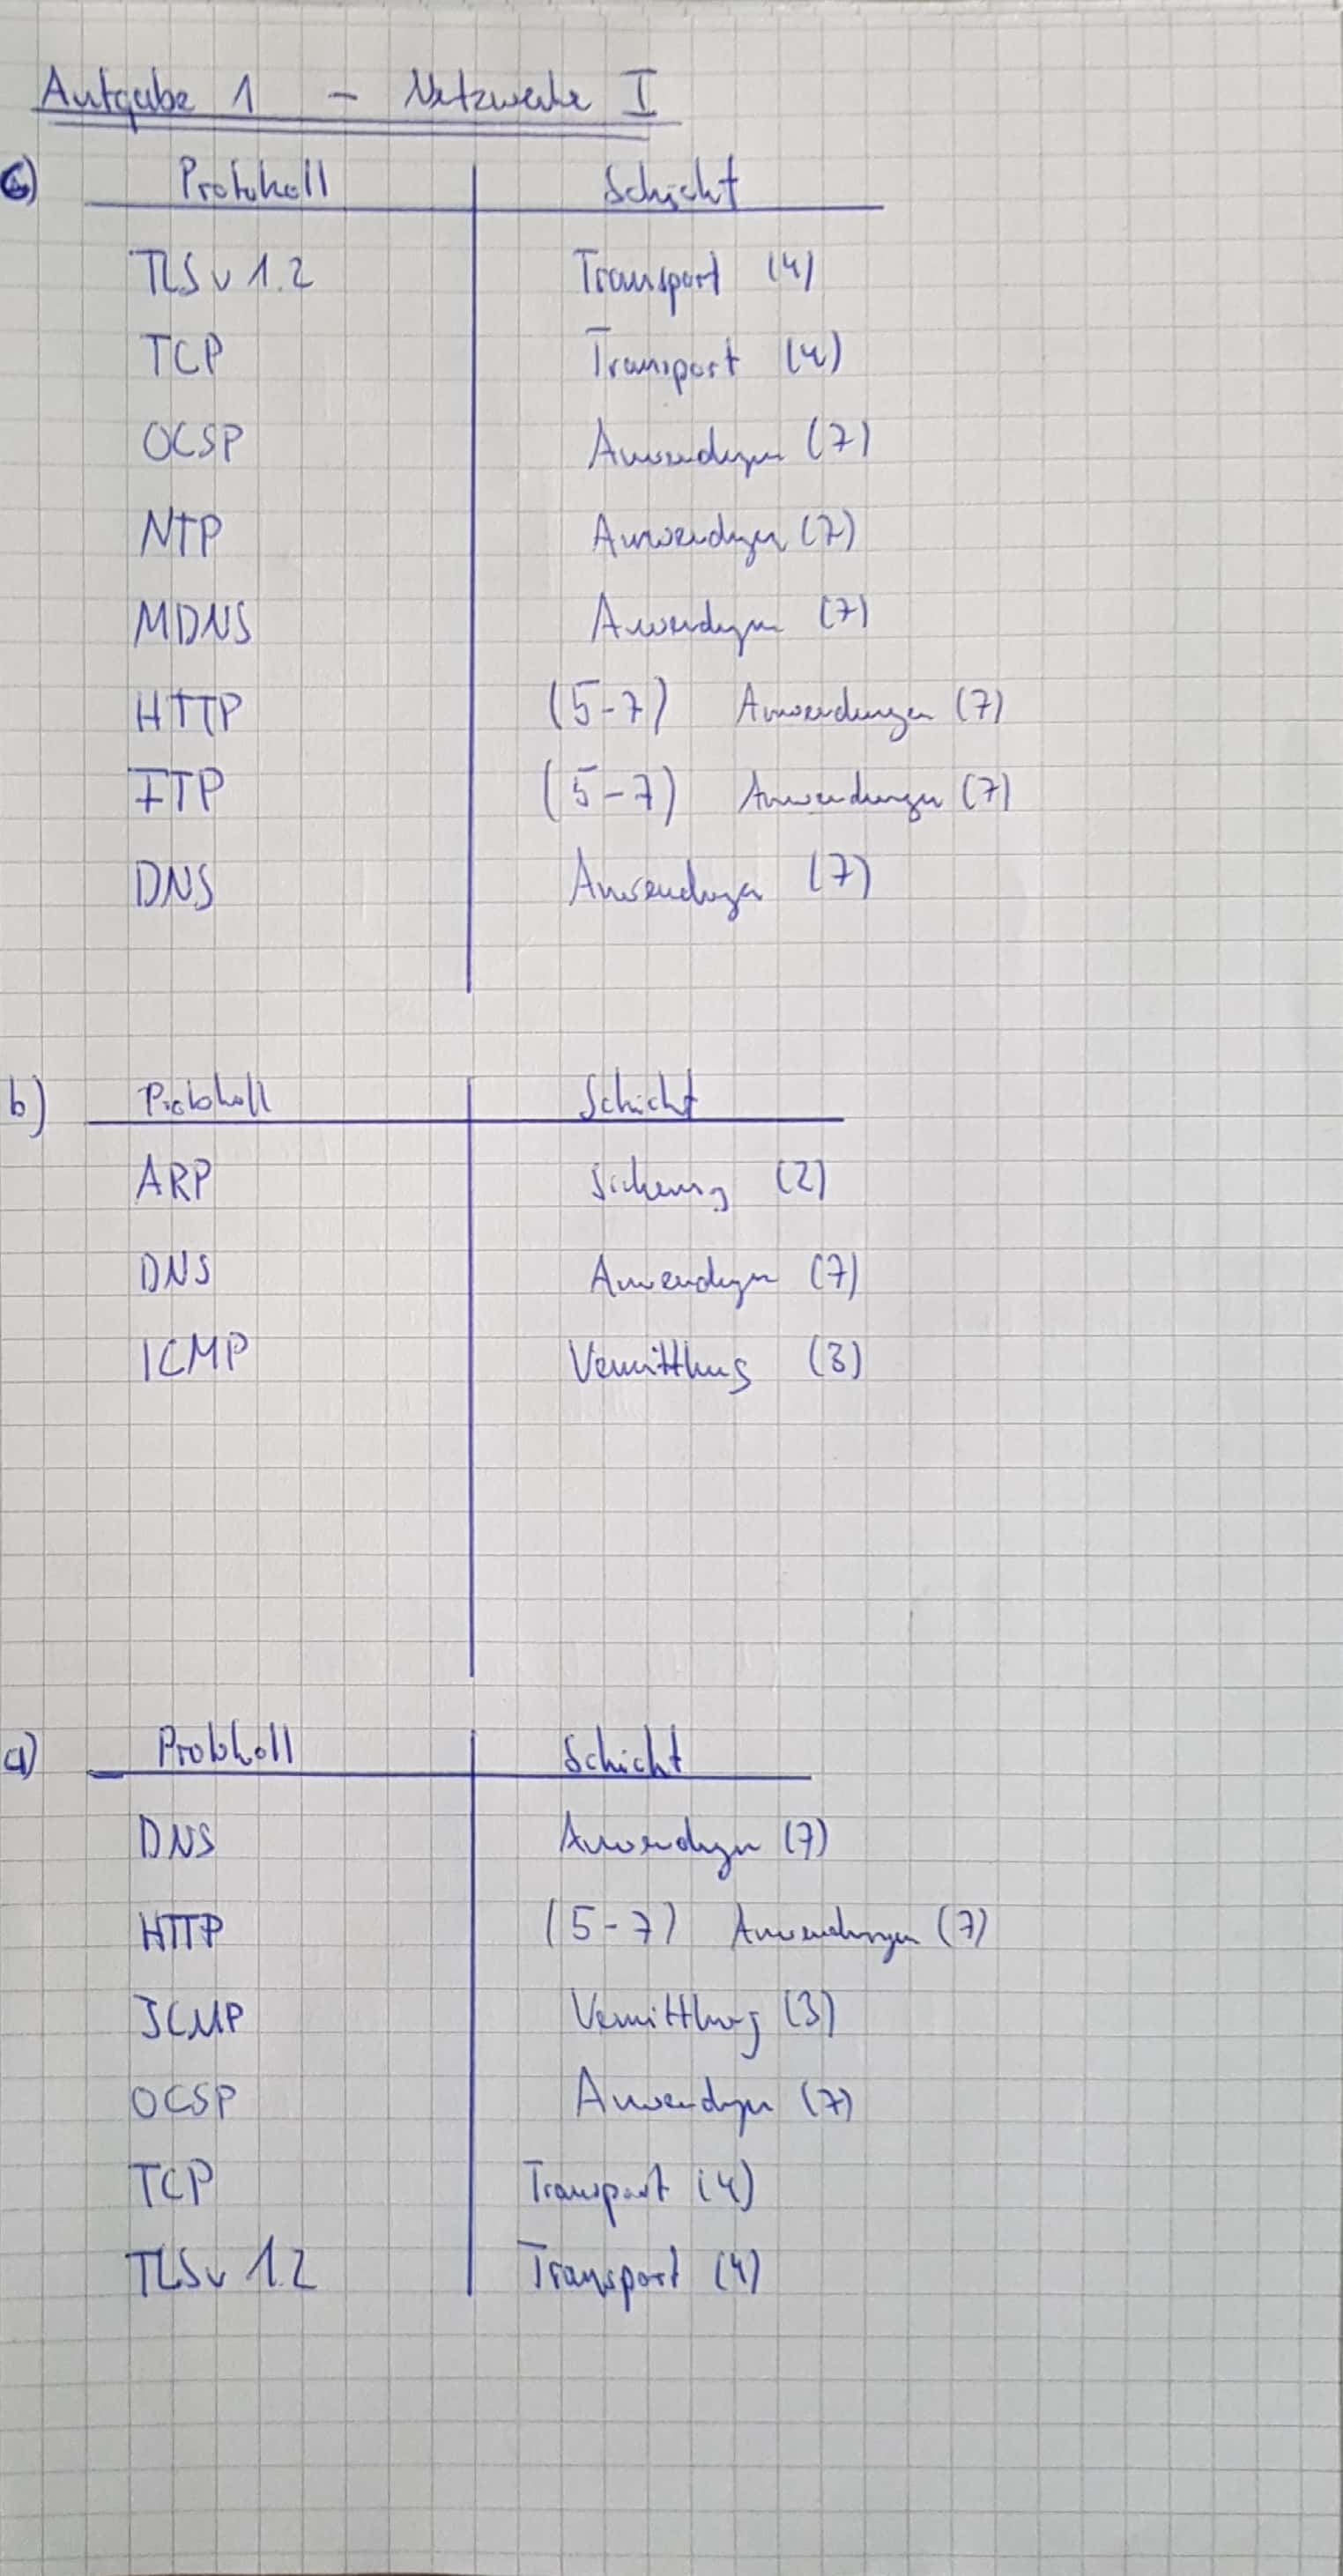 Aufgabe 1 - Netzwerke I
c) Protokoll Schicht
TLSv 1.2 Transport (4)
TCP Transport (4)
OCSP Anwendungen (7)
NTP Anwendungen (7)
MDNS Anwendungen (7)
HTTP (5-7) Anwendungen (7)
FTP (5-7) Anwendungen (7)
DNS Anwendungen (7)
b) Protokoll Schicht
ARP Sicherung (2)
DNS Anwendungen (7)
ICMP Vermittlung (3)
a) Protokoll Schicht
DNS Anwendungen (7)
HTTP (5-7) Anwendungen (7)
ICMP Vermittlung (3)
OCSP Anwendungen (7)
TCP Transport (4)
TLSv 1.2 Transport (4)